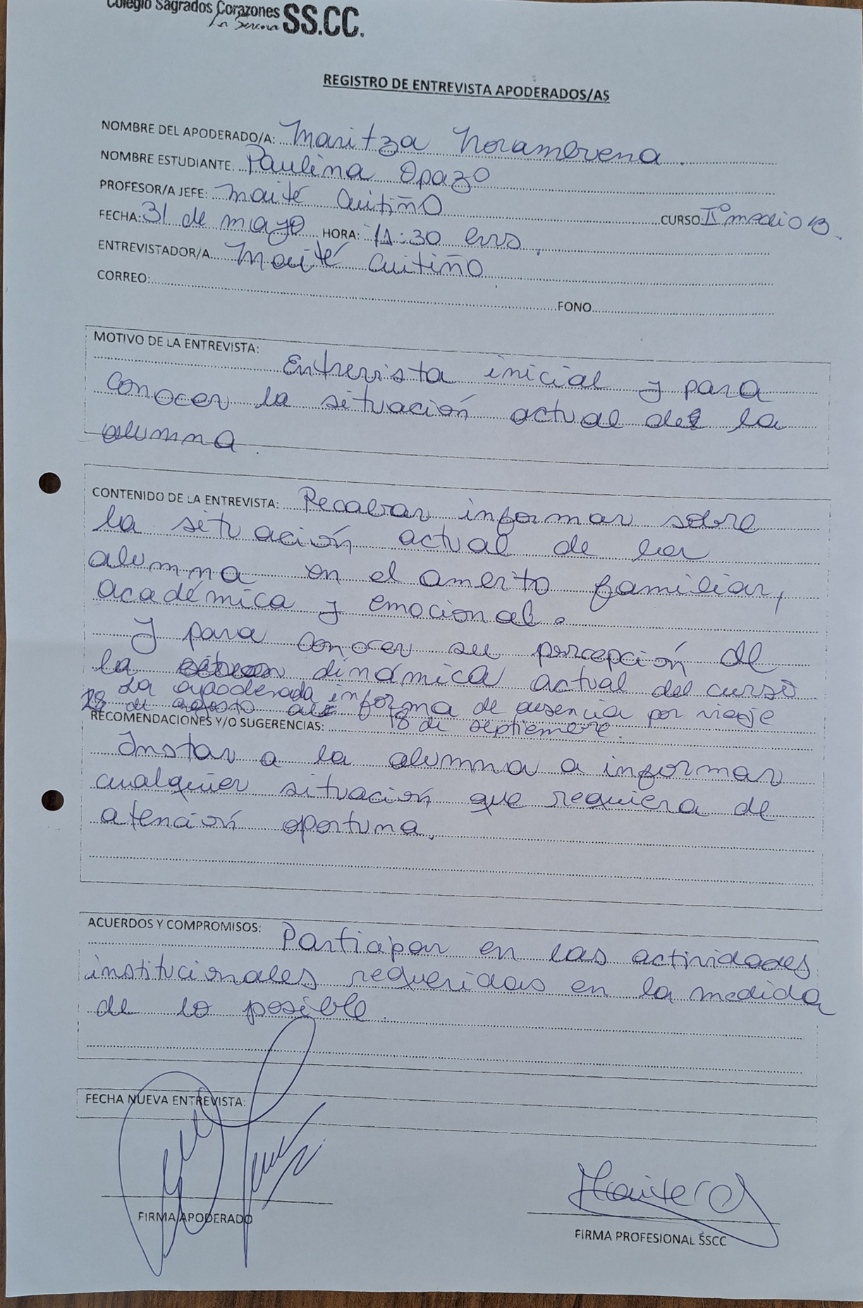 Colegio Sagrados Corazones SS.CC.
La Serena
REGISTRO DE ENTREVISTA APODERADOS/AS
NOMBRE DEL APODERADO/A: Maritza Noramovena
NOMBRE ESTUDIANTE Paulina Opazo
PROFESOR/A JEFE: Maite Cuitiño
CURSO IIº medio B.
FECHA: 31 de mayo HORA: 11:30 hrs
ENTREVISTADOR/A Maite Cuitiño
CORREO: FONO
MOTIVO DE LA ENTREVISTA: Entrevista inicial y para
conocer la situación actual de la
alumna.
CONTENIDO DE LA ENTREVISTA: Recabar informar sobre
la situación actual de la
alumna en el ámbito familiar,
académica y emocional.
Y para conocer su percepción de
la dinámica actual del curso
La apoderada informa de ausencia por viaje
28 de agosto al 18 de septiembre.
RECOMENDACIONES Y/O SUGERENCIAS:
Instar a la alumna a informar
cualquier situación que requiera de
atención oportuna.
ACUERDOS Y COMPROMISOS: Partiapar en las actividades
institucionales requeridas en la medida
de lo posible.
FECHA NUEVA ENTREVISTA:
FIRMA APODERADO
FIRMA PROFESIONAL SSCC